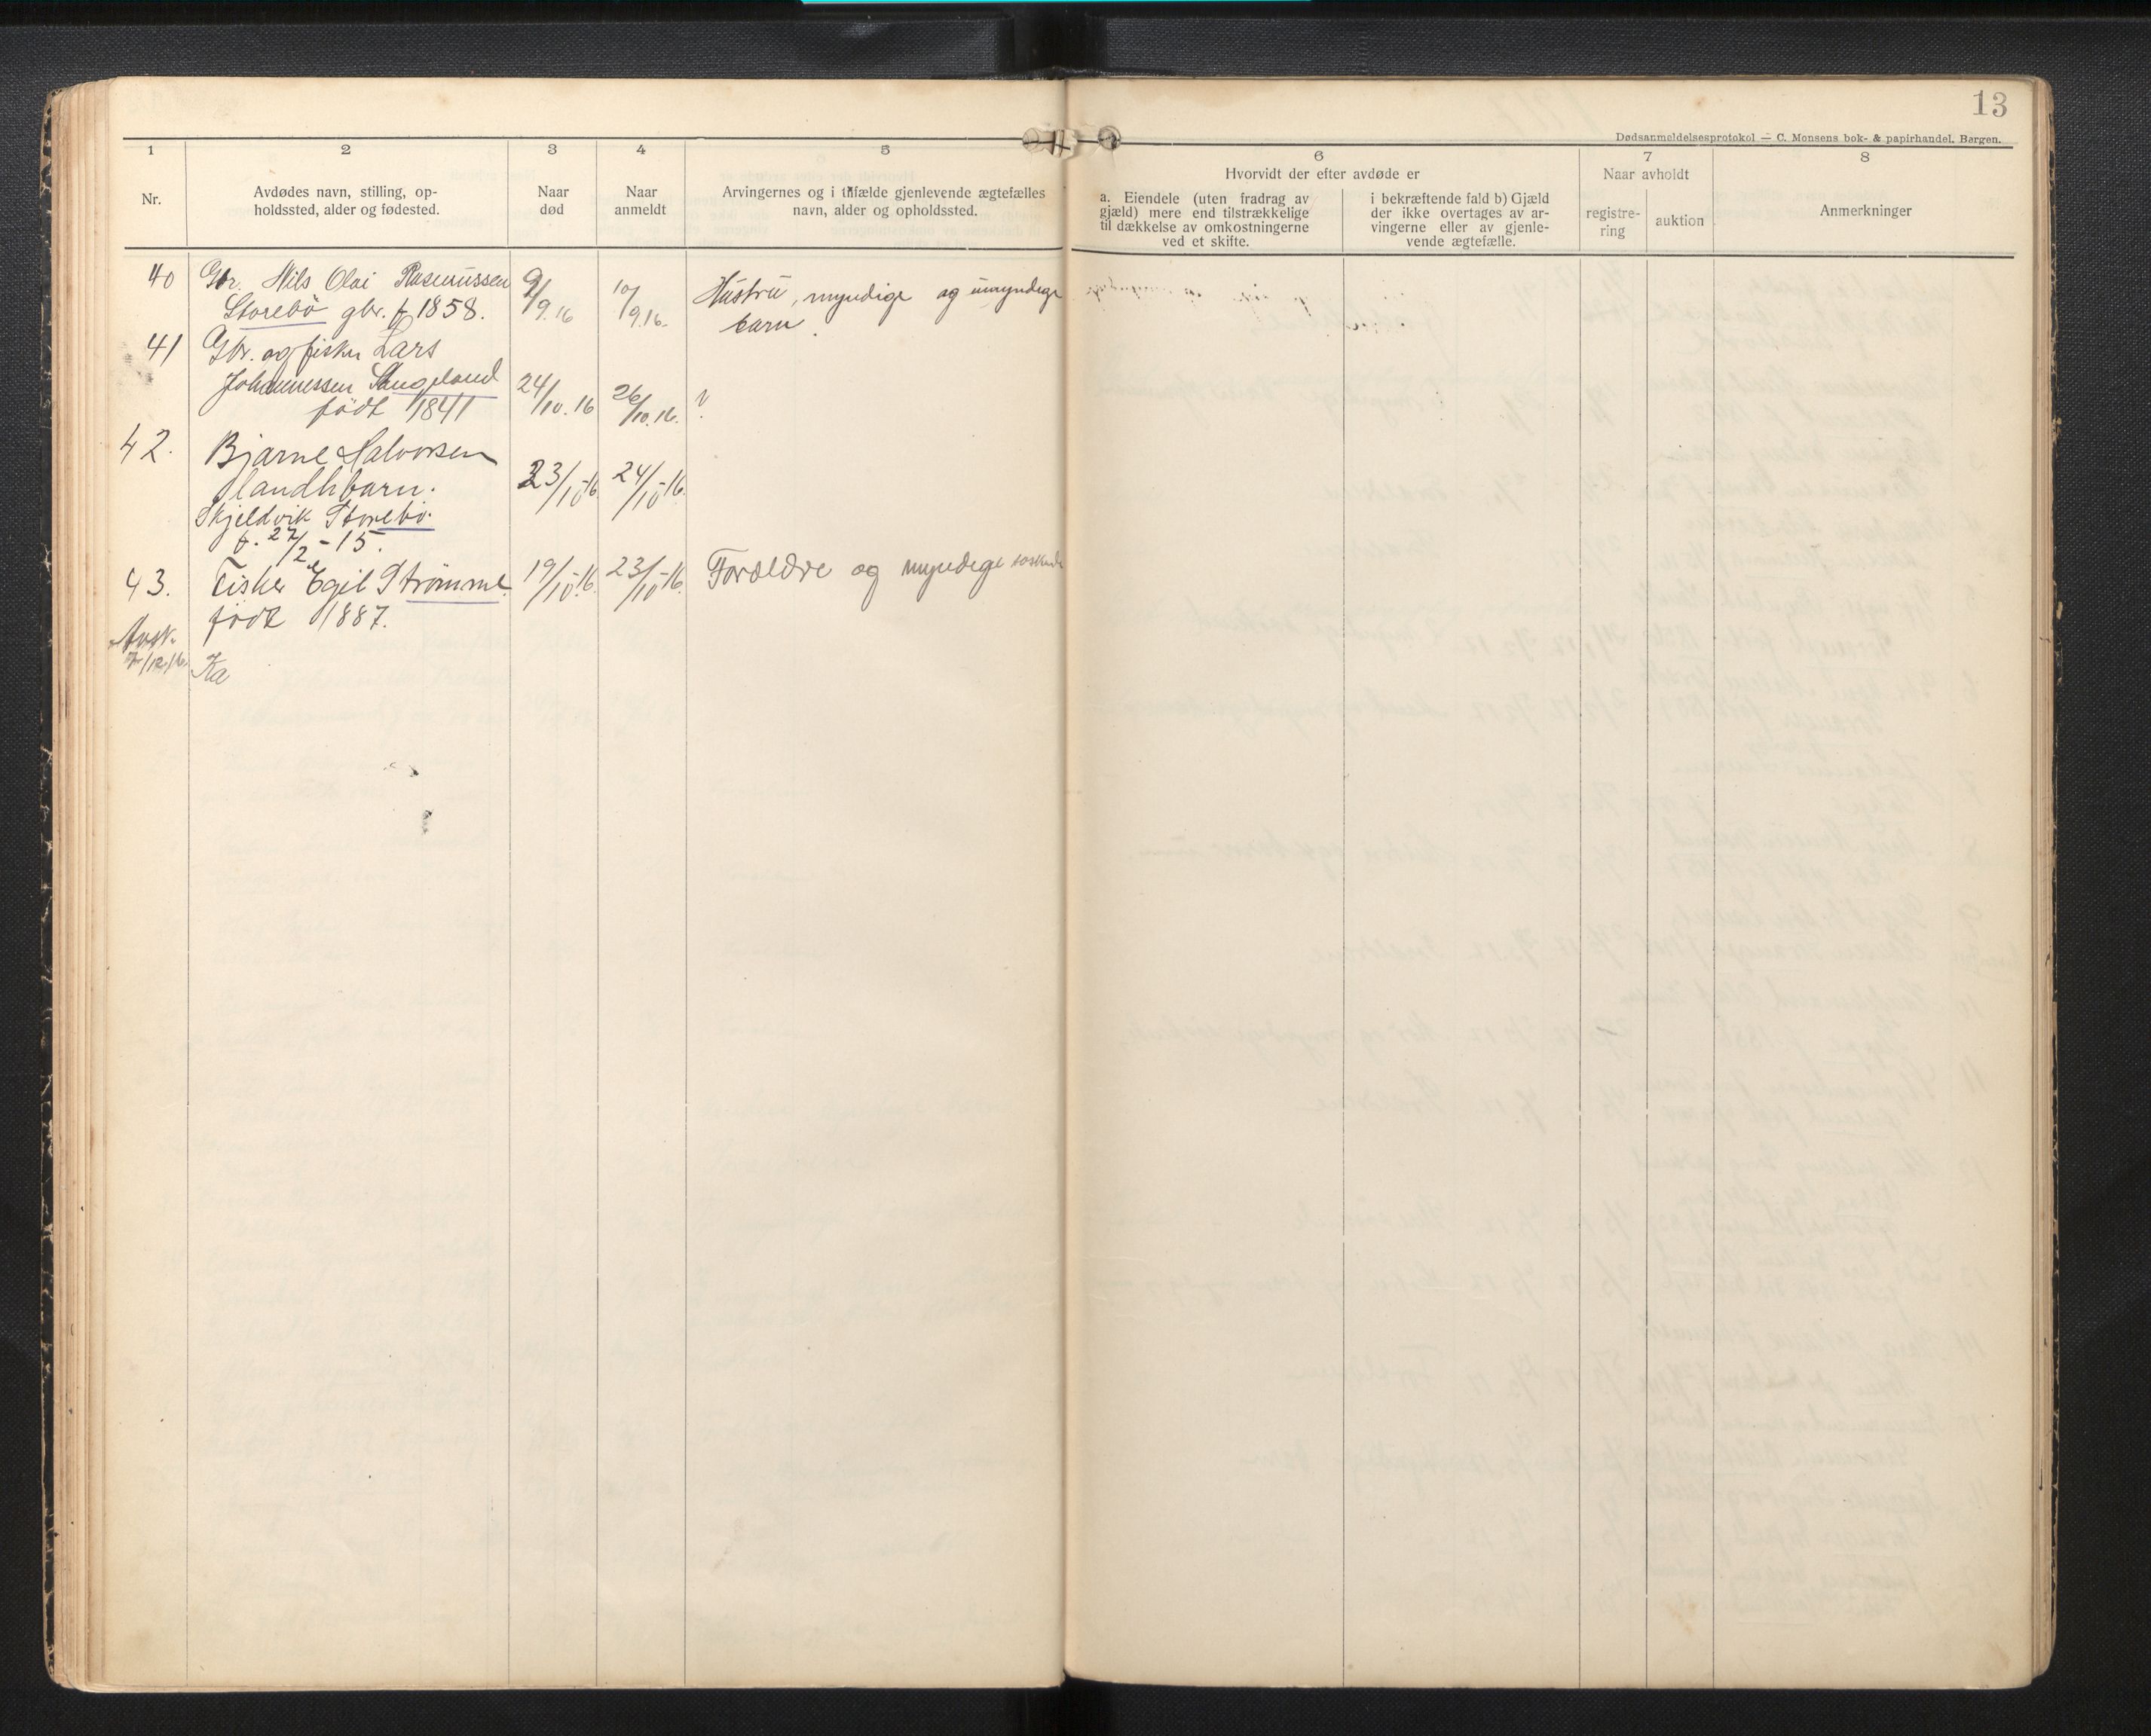 13
Dødsanmeldelsesprotokol — C. Monsens bok- & papirhandel. Bergen.
1
2
3
4
5
6
7
8
Nr.
Avdødes navn, stilling, op-
holdssted, alder og fødested.
Naar
død
Naar
anmeldt
Arvingernes og i tilfælde gjenlevende ægtefælles
navn, alder og opholdssted.
Hvorvidt der efter avdøde er
a. Eiendele (uten fradrag av
gjæld) mere end tilstrækkelige
til dækkelse av omkostningerne
ved et skifte.
i bekræftende fald b) Gjæld
der ikke overtages av ar-
vingerne eller av gjenle-
vende ægtefælle.
Naar avholdt
registre-
ring
auktion
Anmerkninger
40 Gbr. Nils Olai Rasmussen 9/9.16 10/9.16. Hustru, myndige og umyndige
Storebö gbr. f. 1858. barn.
41 Gbr. og fisker Lars
Johannessen 24/10.16 26/10.16. ?
födt 1841
42. Bjarne Halvorsen
23/10-16 24/10-16.
Skjeldvik Storebö.
f. 27/2-15.
43. Fisker Egil Strömme 19/10-16. 23/10-16. Forældre og myndige söskende
födt 1887.
7/12.16.
Ka